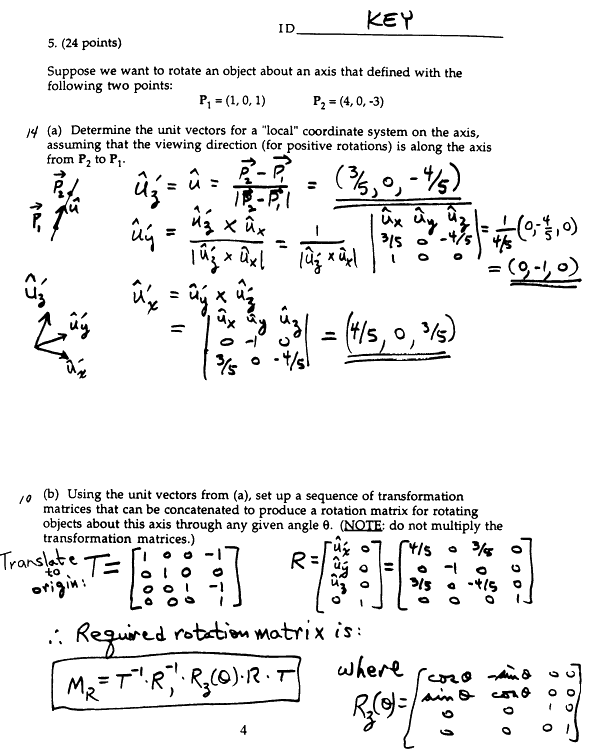 ID KEY
5. (24 points)
Suppose we want to rotate an object about an axis that defined with the
following two points:
P₁ = (1, 0, 1) P₂ = (4, 0, -3)
14 (a) Determine the unit vectors for a "local" coordinate system on the axis,
assuming that the viewing direction (for positive rotations) is along the axis
from P₂ to P₁.
P⃗₂ P⃗₁ û
û′z = û = (P⃗₂ - P⃗₁) / |P⃗₂ - P⃗₁| = (3/5, 0, -4/5)
û′y = (û′z × ûx) / |û′z × ûx| = 1 / |û′z × ûx| | ûx ûy ûz ; 3/5 0 -4/5 ; 1 0 0 | = 1/(4/5) (0, -4/5, 0)
= (0, -1, 0)
û′z û′y û′x
û′x = û′y × û′z
= | ûx ûy ûz ; 0 -1 0 ; 3/5 0 -4/5 | = (4/5, 0, 3/5)
10 (b) Using the unit vectors from (a), set up a sequence of transformation
matrices that can be concatenated to produce a rotation matrix for rotating
objects about this axis through any given angle θ. (NOTE: do not multiply the
transformation matrices.)
Translate to origin: T = [ 1 0 0 -1 ; 0 1 0 0 ; 0 0 1 -1 ; 0 0 0 1 ]
R = [ û′x 0 ; û′y 0 ; û′z 0 ; 0 1 ] = [ 4/5 0 3/5 0 ; 0 -1 0 0 ; 3/5 0 -4/5 0 ; 0 0 0 1 ]
∴ Required rotation matrix is:
M_R = T⁻¹ · R⁻¹ · Rz(θ) · R · T
where
Rz(θ) = [ cos θ -sin θ 0 0 ; sin θ cos θ 0 0 ; 0 0 1 0 ; 0 0 0 1 ]
4